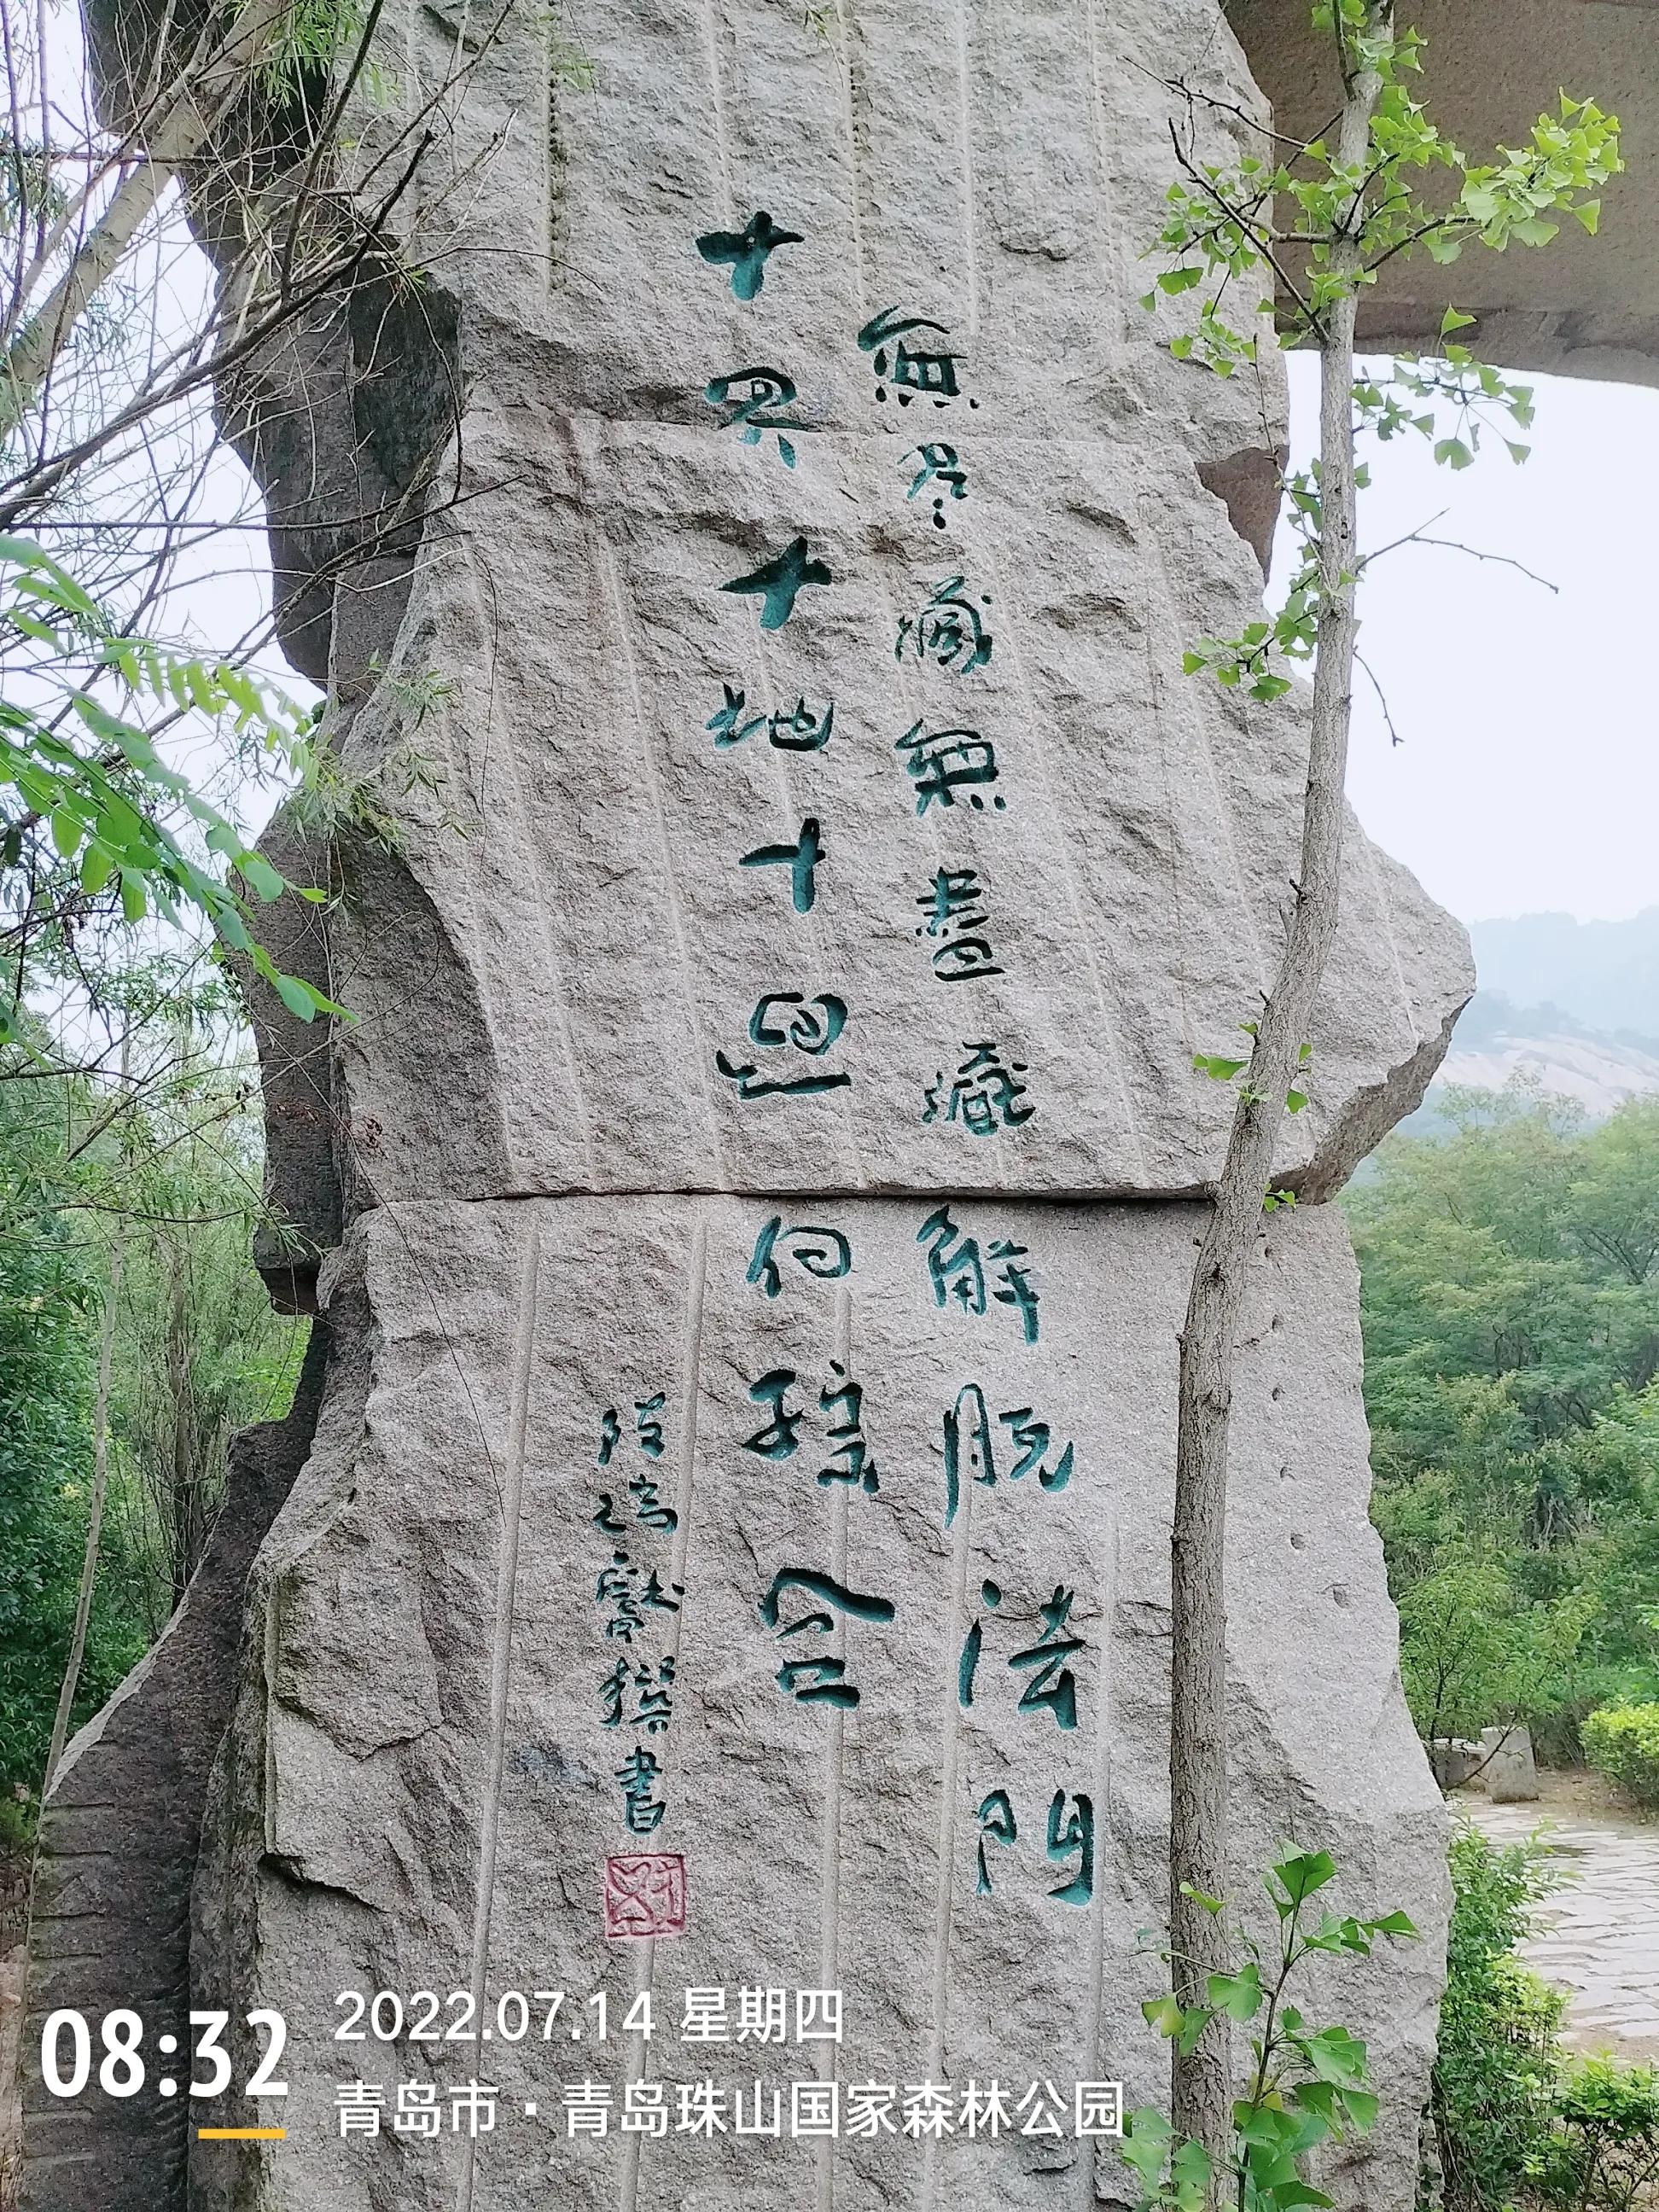 無尽藏無盡藏解脱法門
十界十地十迴向綜合
陳瑞獻撰書
08:32
2022.07.14 星期四
青岛市·青岛珠山国家森林公园